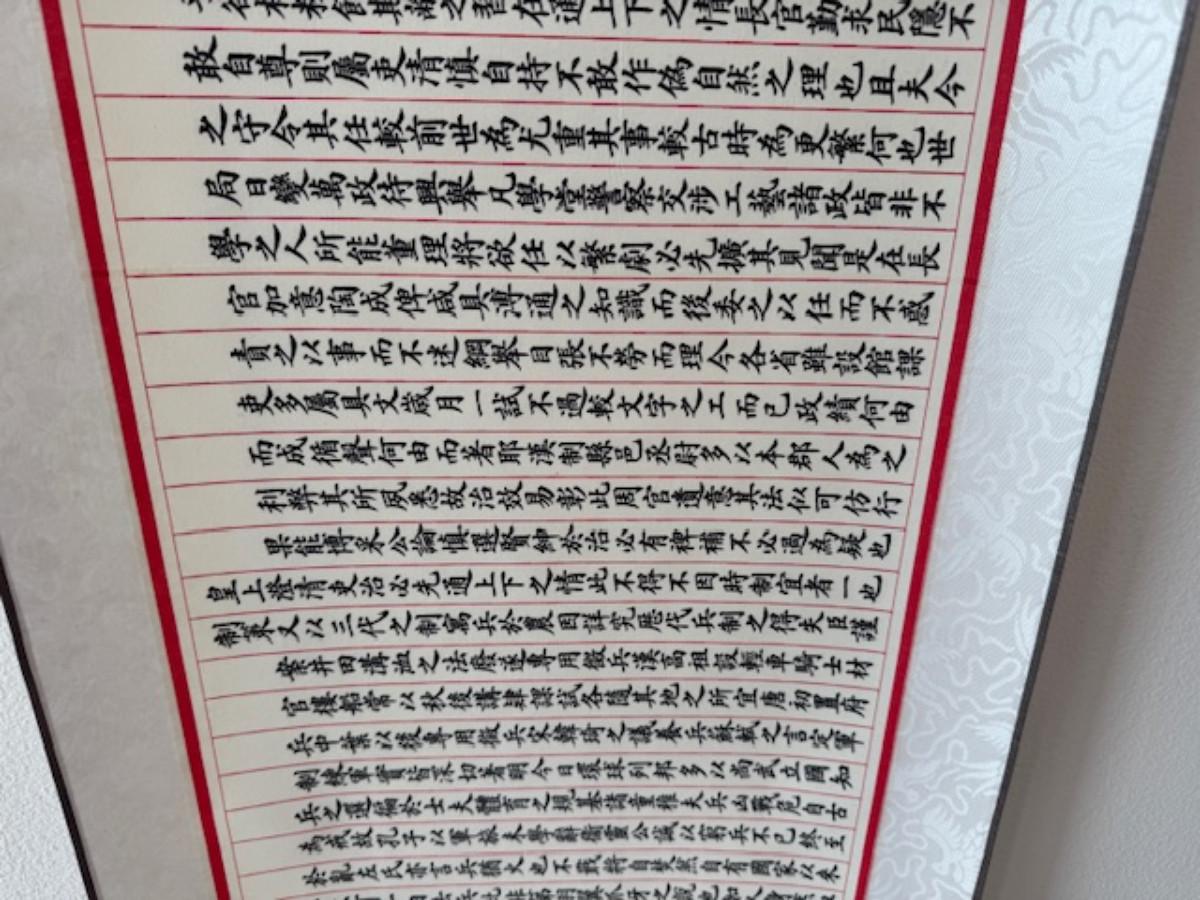 之習在通上下之情長官勤求民隱不
敢自尊則屬吏清慎自持不敢作偽自然之理也且夫今
之守令其任較前世為尤重其事較古時為更繁何也世
局日變萬政待興舉凡學堂警察交涉工藝諸政皆非不
學之人所能董理將欲任以繁劇必先擴其見聞是在長
官加意陶成俾咸具溥通之知識而後委之以任而不惑
責之以事而不迷綱舉目張不勞而理今各省雖設館課
吏多屬具文歲月一試不過較文字之工而已政績何由
而成循聲何由而著耶漢制縣邑丞尉多以本郡人為之
利弊其所夙悉故治效易彰此周官遺意其法似可仿行
果能博采公論慎選賢紳於治必有裨補不必過為疑也
皇上澄清吏治必先通上下之情此不得不因時制宜者一也
制策又以三代之制寓兵於農因詳究歷代兵制之得失臣謹
案井田溝洫之法廢遂專用徵兵漢高祖設輕車騎士材
官樓船常以秋後講肄課試各隨其地之所宜唐初置府
兵中葉以後專用徵兵宋韓琦之議養兵蘇軾之言定軍
制練軍實皆深切著明今日環球列邦多以尚武立國知
兵之選徧於士夫體育之規基諸童稚夫兵凶戰危自古
為戒故孔子以軍旅未學辭衛靈公誠以窮兵不已終至
於亂左氏亦言兵猶火也不戢將自焚然自有國家以來